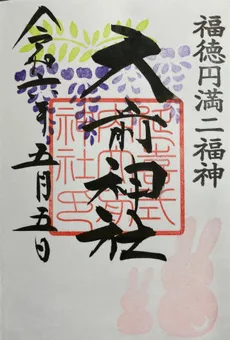 福徳円満二福神
大前神社
令和六年五月五日